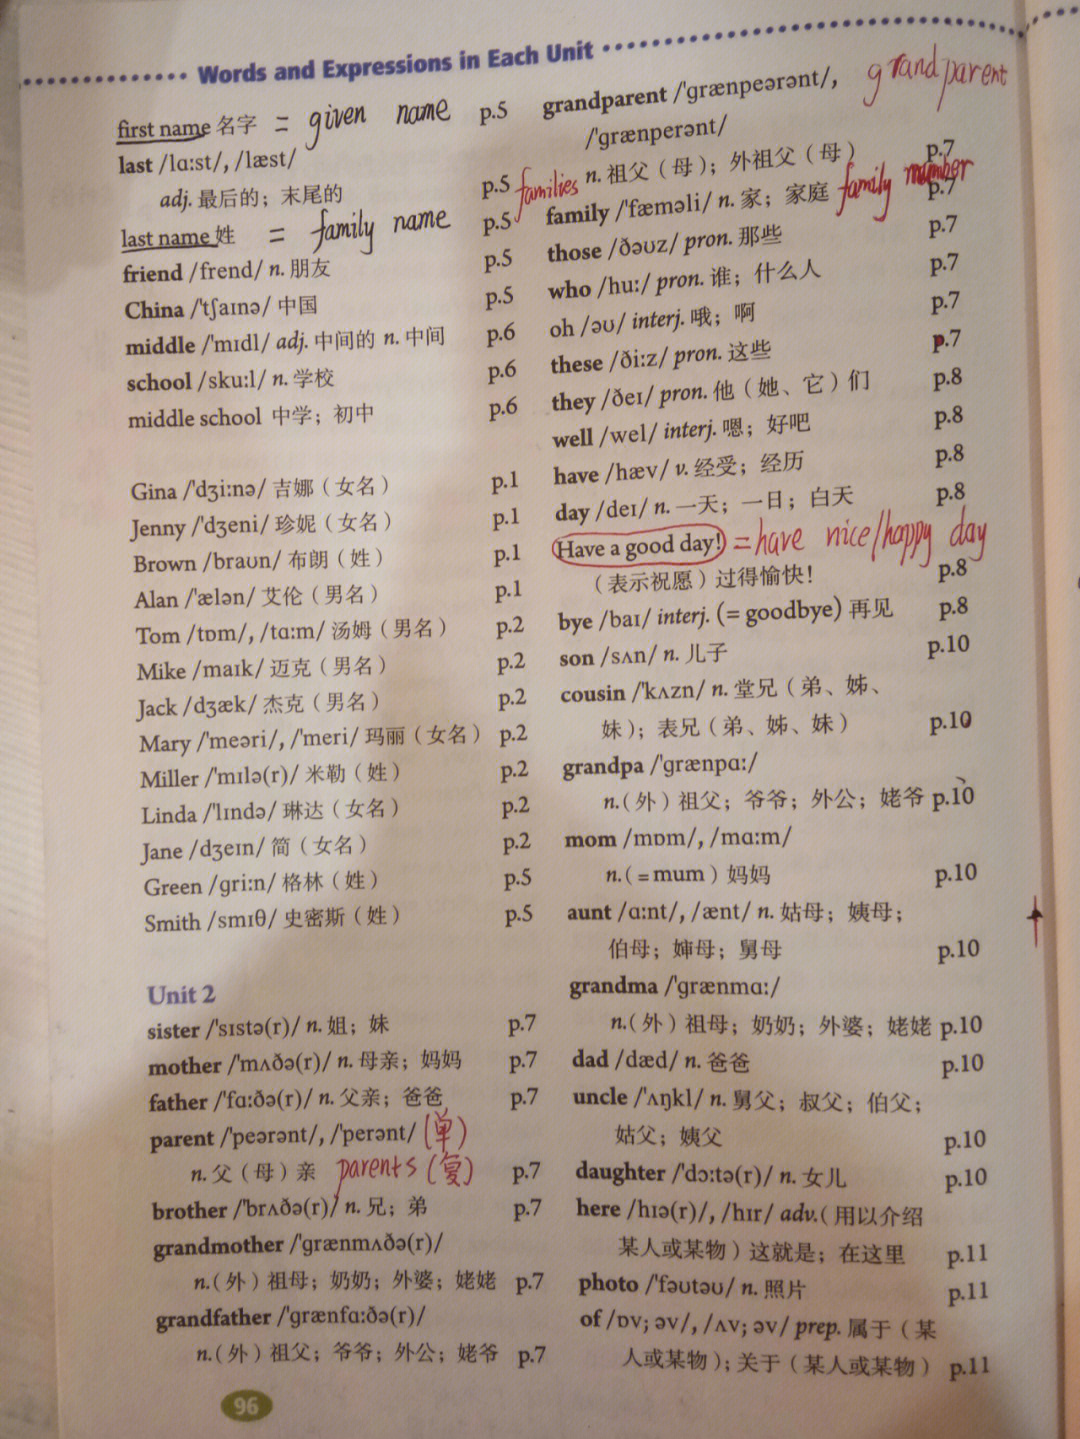 Words and Expressions in Each Unit
first name 名字 = given name p.5
last /lɑːst/, /læst/
adj. 最后的；末尾的 p.5
last name 姓 = family name p.5
friend /frend/ n. 朋友 p.5
China /ˈtʃaɪnə/ 中国 p.5
middle /ˈmɪdl/ adj. 中间的 n. 中间 p.6
school /skuːl/ n. 学校 p.6
middle school 中学；初中 p.6
Gina /ˈdʒiːnə/ 吉娜（女名） p.1
Jenny /ˈdʒeni/ 珍妮（女名） p.1
Brown /braʊn/ 布朗（姓） p.1
Alan /ˈælən/ 艾伦（男名） p.1
Tom /tɒm/, /tɑːm/ 汤姆（男名） p.2
Mike /maɪk/ 迈克（男名） p.2
Jack /dʒæk/ 杰克（男名） p.2
Mary /ˈmeəri/, /ˈmeri/ 玛丽（女名） p.2
Miller /ˈmɪlə(r)/ 米勒（姓） p.2
Linda /ˈlɪndə/ 琳达（女名） p.2
Jane /dʒeɪn/ 简（女名） p.2
Green /griːn/ 格林（姓） p.5
Smith /smɪθ/ 史密斯（姓） p.5
Unit 2
sister /ˈsɪstə(r)/ n. 姐；妹 p.7
mother /ˈmʌðə(r)/ n. 母亲；妈妈 p.7
father /ˈfɑːðə(r)/ n. 父亲；爸爸 p.7
parent /ˈpeərənt/, /ˈperənt/ (单)
n. 父（母）亲 parents (复) p.7
brother /ˈbrʌðə(r)/ n. 兄；弟 p.7
grandmother /ˈgrænmʌðə(r)/
n.（外）祖母；奶奶；外婆；姥姥 p.7
grandfather /ˈgrænfɑːðə(r)/
n.（外）祖父；爷爷；外公；姥爷 p.7
grandparent /ˈgrænpeərənt/, grandparent
/ˈgrænperənt/
n. 祖父（母）；外祖父（母） p.7
families family /ˈfæməli/ n. 家；家庭 family number p.7
those /ðəʊz/ pron. 那些 p.7
who /huː/ pron. 谁；什么人 p.7
oh /əʊ/ interj. 哦；啊 p.7
these /ðiːz/ pron. 这些 p.7
they /ðeɪ/ pron. 他（她、它）们 p.8
well /wel/ interj. 嗯；好吧 p.8
have /hæv/ v. 经受；经历 p.8
day /deɪ/ n. 一天；一日；白天 p.8
Have a good day! = have nice/happy day
（表示祝愿）过得愉快！ p.8
bye /baɪ/ interj. (= goodbye) 再见 p.8
son /sʌn/ n. 儿子 p.10
cousin /ˈkʌzn/ n. 堂兄（弟、姊、
妹）；表兄（弟、姊、妹） p.10
grandpa /ˈgrænpɑː/
n.（外）祖父；爷爷；外公；姥爷 p.10
mom /mɒm/, /mɑːm/
n.（= mum）妈妈 p.10
aunt /ɑːnt/, /ænt/ n. 姑母；姨母；
伯母；婶母；舅母 p.10
grandma /ˈgrænmɑː/
n.（外）祖母；奶奶；外婆；姥姥 p.10
dad /dæd/ n. 爸爸 p.10
uncle /ˈʌŋkl/ n. 舅父；叔父；伯父；
姑父；姨父 p.10
daughter /ˈdɔːtə(r)/ n. 女儿 p.10
here /hɪə(r)/, /hɪr/ adv.（用以介绍
某人或某物）这就是；在这里 p.11
photo /ˈfəʊtəʊ/ n. 照片 p.11
of /ɒv; əv/, /ʌv; əv/ prep. 属于（某
人或某物）；关于（某人或某物） p.11
96